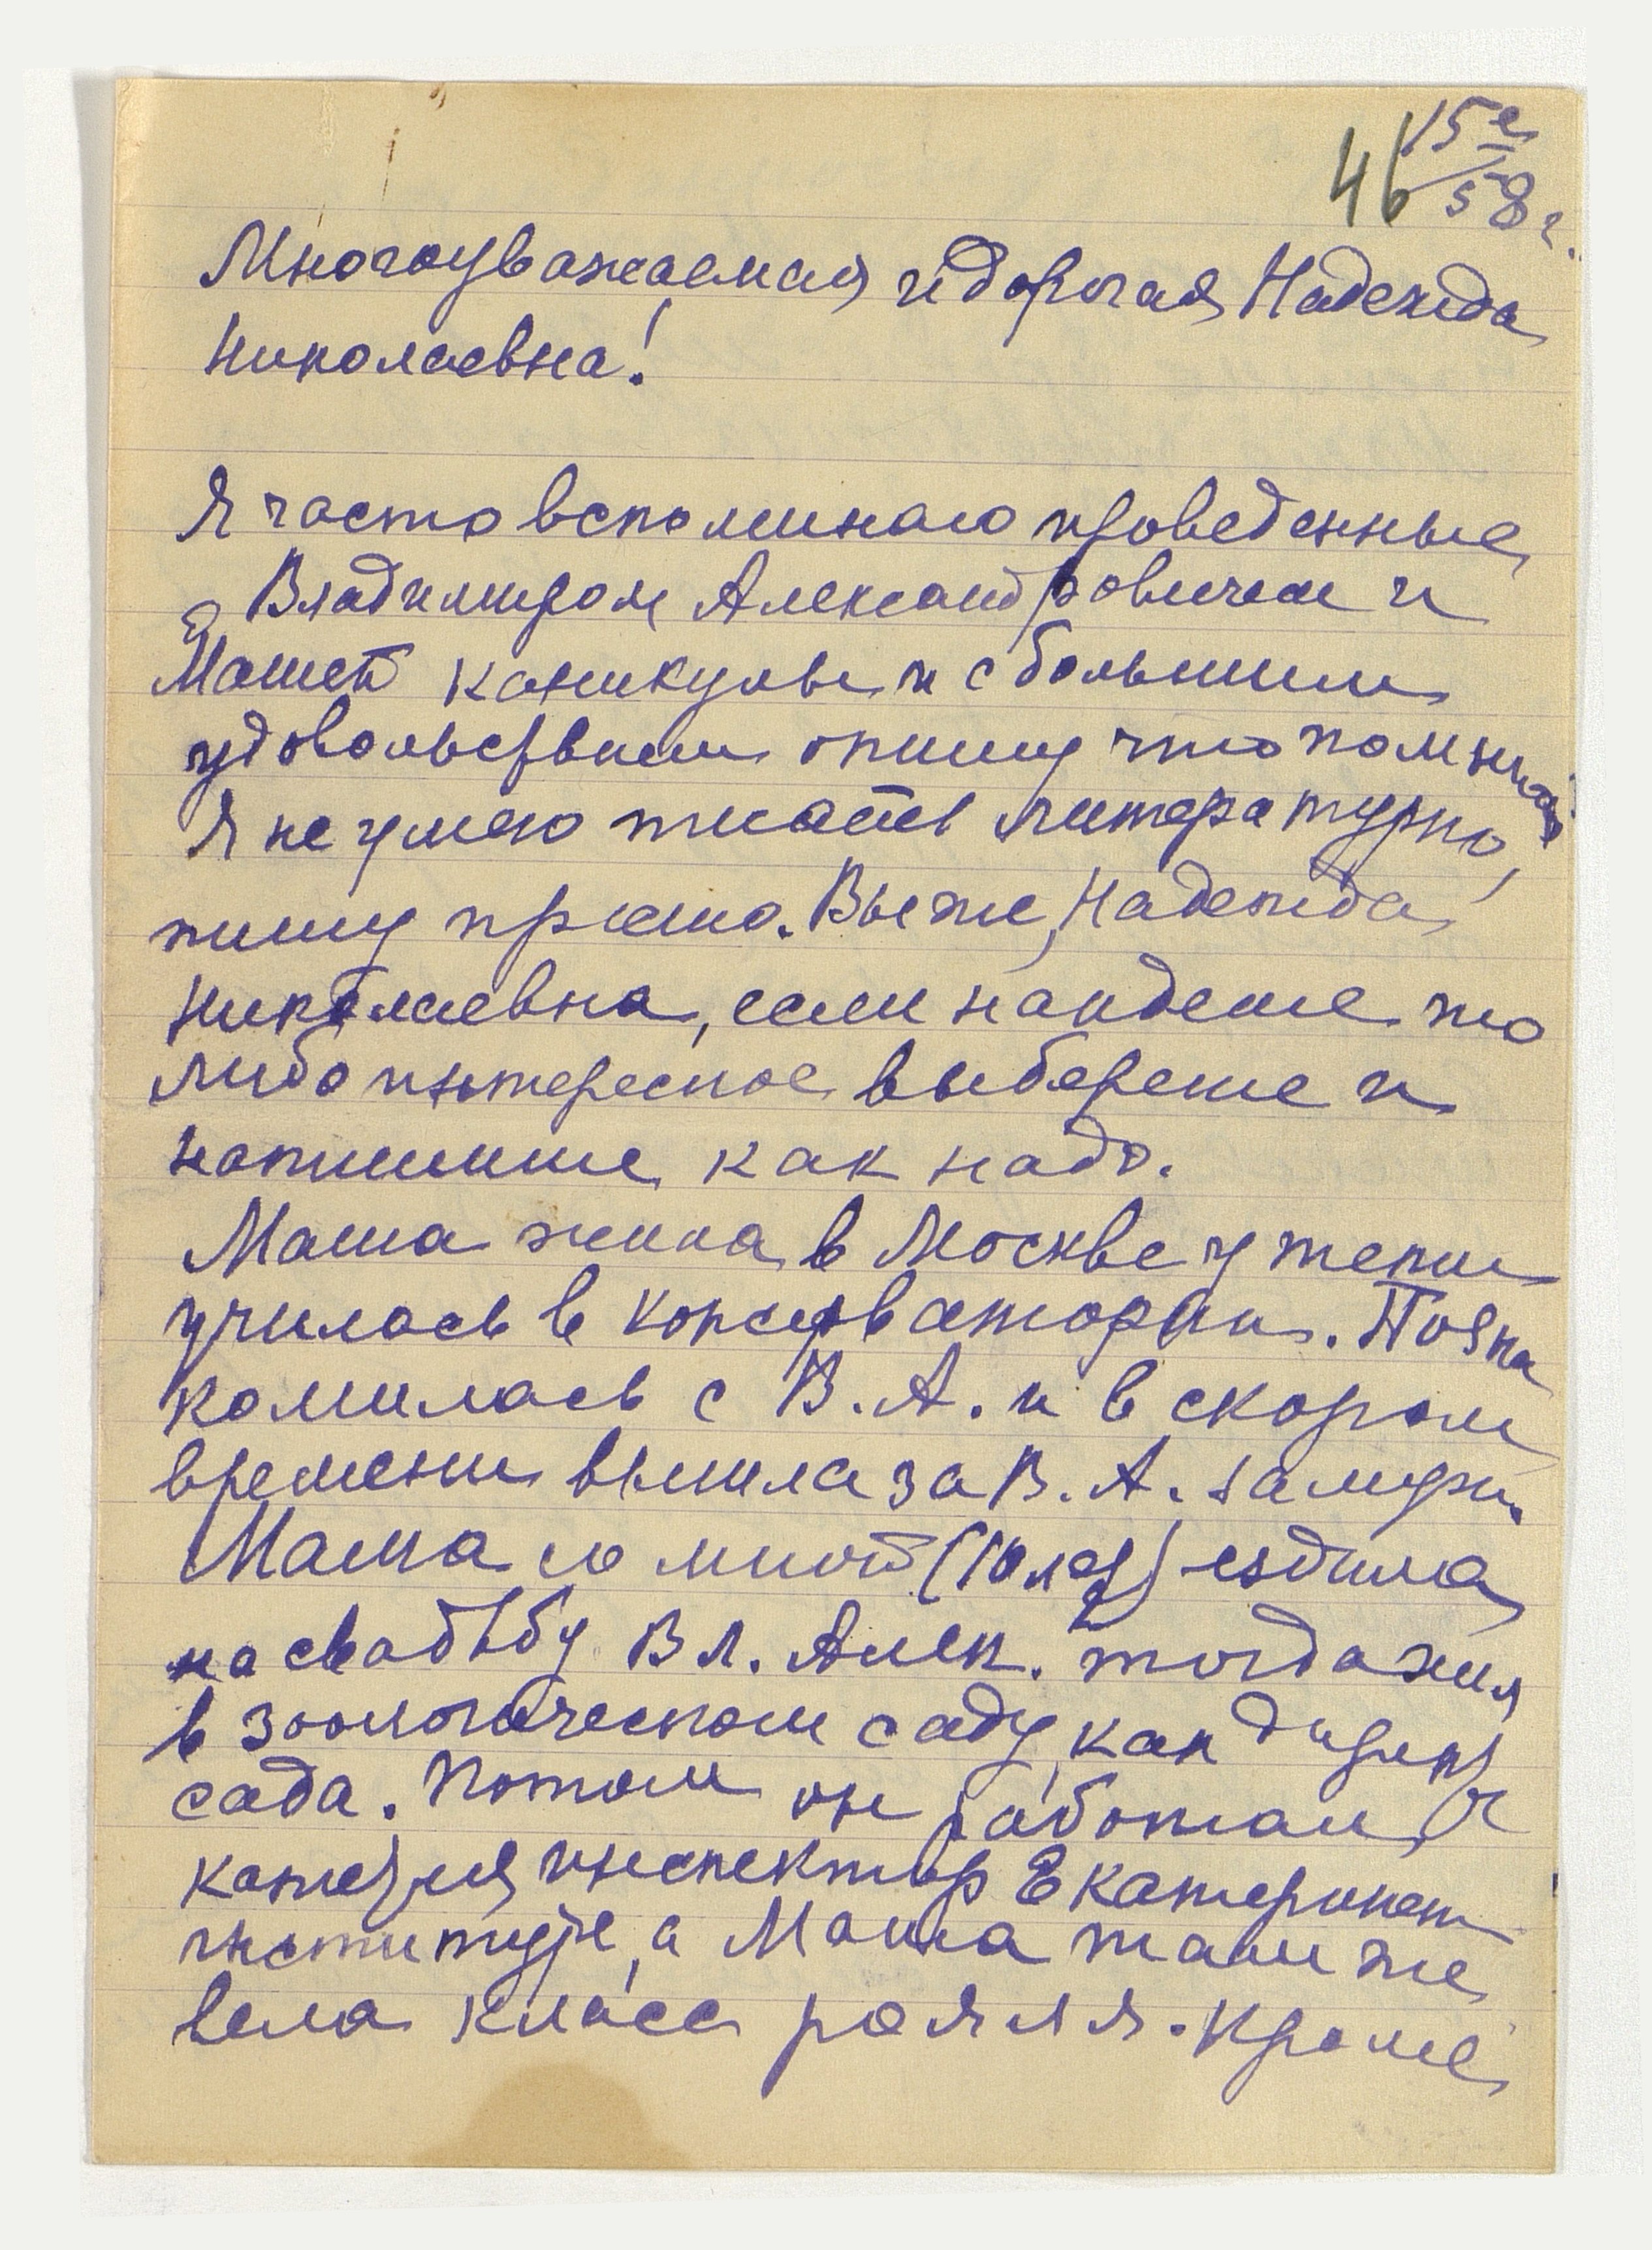 46
58 г.
Многоуважаемая и дорогая Надежда
Николаевна!
Я часто вспоминаю проведенные
с Владимиром Александровичем и
Машей каникулы и с большим
удовольствием опишу что помню.
Я не умею писать литературно,
пишу просто. Вы же, Надежда
Николаевна, если найдете что
либо интересное выберете и
напишите как надо.
Маша жила в Москве у тетки
училась в консерватории. Позна
комилась с В. А. и в скором
времени вышла за В. А. замуж.
Мама со мной (10 лет) ездила
на свадьбу Вл. Алек. тогда жил
в зоологическом саду, как
сада. Потом он работал, в
инспектор Екатеринен
институте, а Маша там же
вела класс рояля. Кроме